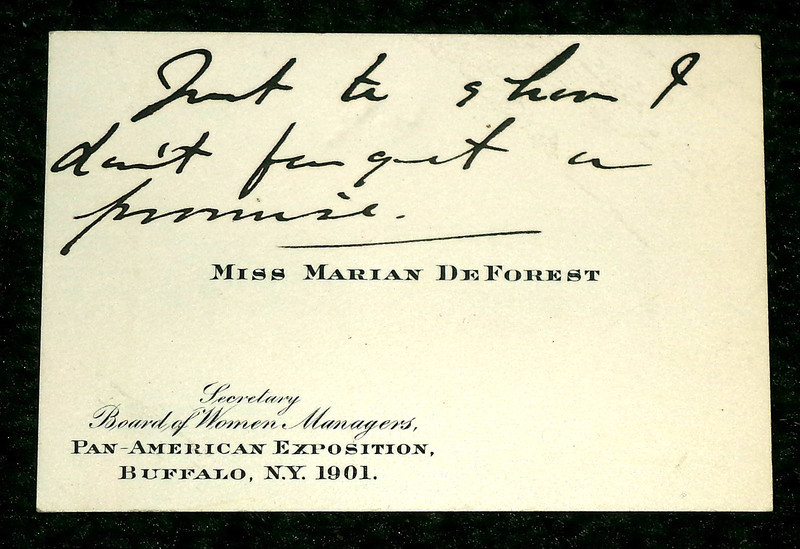 Just to show I
don't forget a
promise.
MISS MARIAN DEFOREST
Secretary
Board of Women Managers,
PAN-AMERICAN EXPOSITION,
BUFFALO, N.Y. 1901.